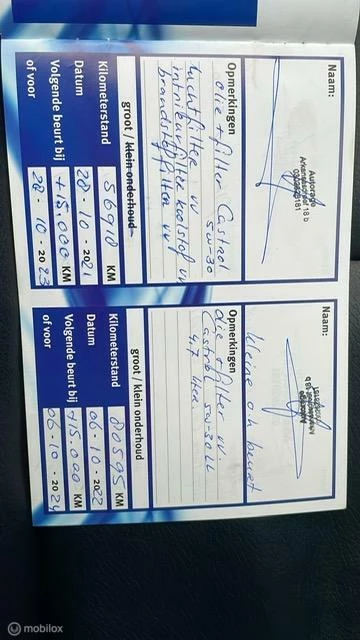 Naam:
Autorage
Opmerkingen
olie + filter Castrol
5W-30
luchtfilter vv
brandstoffilter vv
groot / klein onderhoud
Kilometerstand
56918 KM
Datum
28-10-2021
Volgende beurt bij
+15.000 KM
of voor
28-10-2023
Naam:
kleine o.h beurt
Opmerkingen
olie + filter vv.
Castrol 5W-30 LL
4.7 liter.
groot / klein onderhoud
Kilometerstand
80595 KM
Datum
06-10-2022
Volgende beurt bij
+15.000 KM
of voor
06-10-2024
mobilox